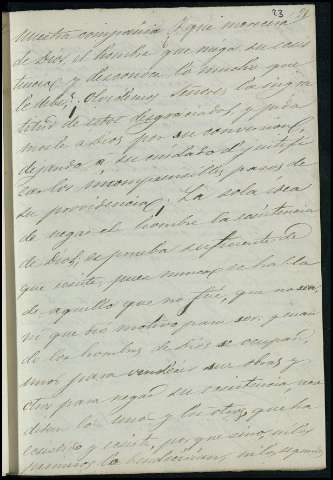 23
nuestra compañía. Y qué merecerá
de Dios, el hombre que niega su exis
tencia y desconoce lo mucho que
le debe? Olvidemos Señores la ingra
titud de estos desgraciados, y pida
mosle a Dios por su conversión,
dejando a su cuidado el justifi
car los incomprensibles pasos de
su providencia! La sola idea
de negar el hombre la existencia
de Dios, es prueba suficiente de
que existe, pues nunca se habla
de aquello que no fué, que no será,
ni que dio motivo para ser; y cuan
do los hombres de Dios se ocupan,
unos para vendecir sus obras y
otros para negar su existencia, acre
ditan los unos y los otros que ha
existido y existe, por que sino, ni los
primeros lo bendecirían, ni los segundos